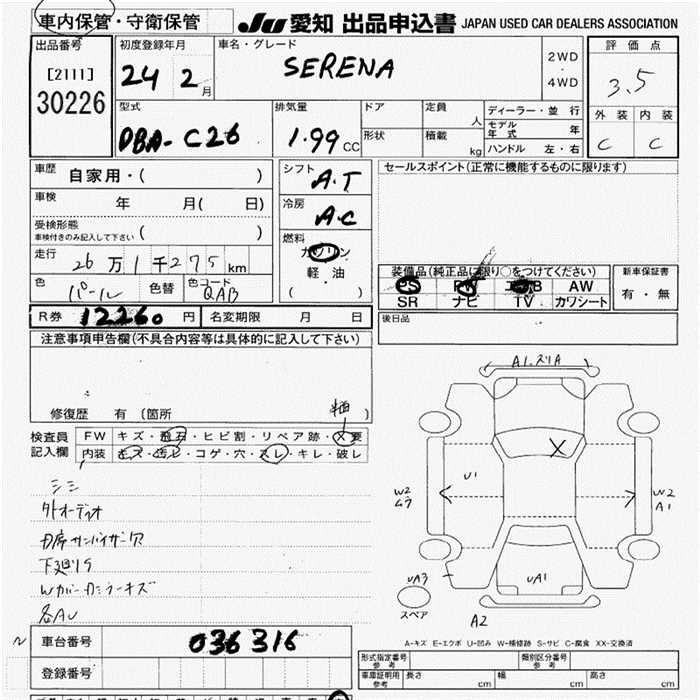 車内保管・守衛保管 JU 愛知 出品申込書 JAPAN USED CAR DEALERS ASSOCIATION
出品番号 初度登録年月 車名・グレード 評価点
[2111] 24 2月 SERENA 2WD・4WD 3.5
30226
型式 排気量 ドア 定員 人 ディーラー・並行 外装 内装
DBA-C26 1.99 CC 形状 積載 kg モデル年式 年 C C
ハンドル 左・右
車歴 自家用・( ) シフト A.T セールスポイント(正常に機能するものに限ります)
車検 年 月( 日) 冷房 A.C
受検形態 ( )
車検付きのみ記入して下さい
燃料 ガソリン
走行 26万1千275km 軽油 装備品(純正品に限り○をつけてください) 新車保証書
色 パール 色替 色コード QAB ( ) PS PW AW 有・無
SR ナビ TV カワシート
R券 12260円 名変期限 月 日 後日品
注意事項申告欄(不具合内容等は具体的に記入して下さい)
A1.ズリA
修復歴 有(箇所 )
検査員 FW キズ・飛石・ヒビ割・リペア跡・X要
記入欄 内装 キズ・汚レ・コゲ・穴・スレ・キレ・破レ
シミ
外オーディオ
サンバイザー欠
下廻りS
Wカバー カミラーキズ
各AU
X
U1
W2
ムラ
W2
A1
UA3
UA1
スペア
A2
車台番号 036316
登録番号
A-キズ E-エクボ U-凹み W-補修跡 S-サビ C-腐食 XX-交換済
形式指定番号 参考 類別区分番号 参考
車庫証明用 参考 長さ cm 幅 cm 高さ cm